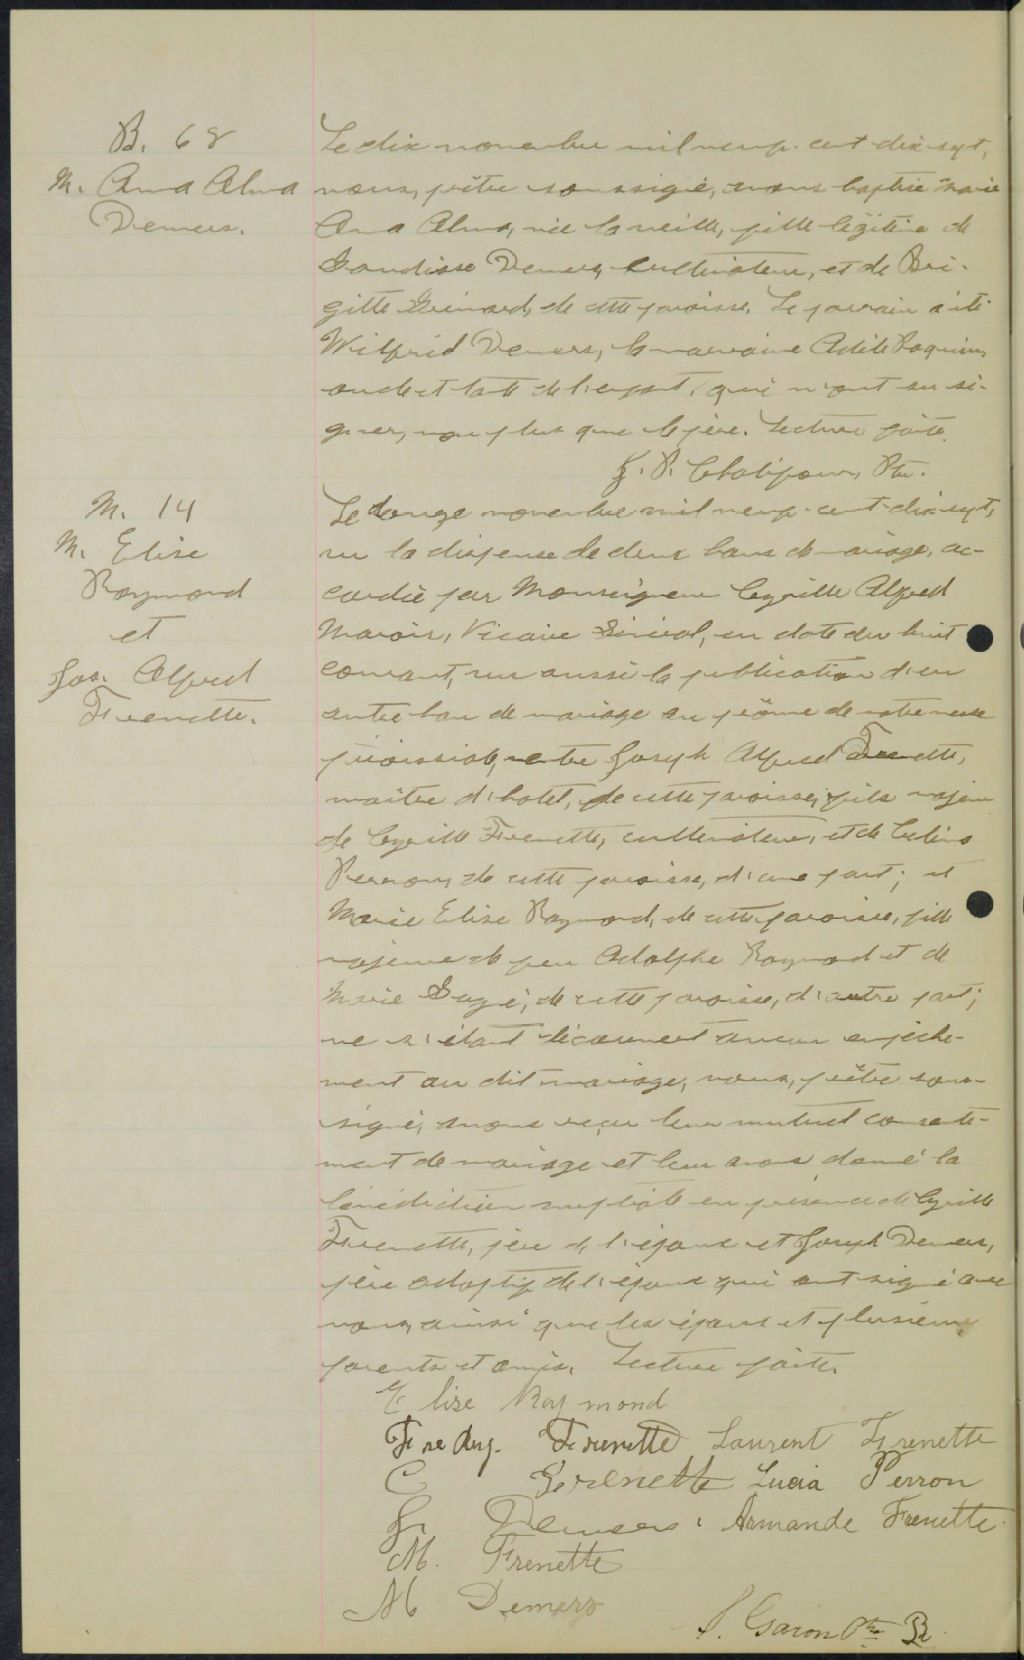 B. 68
M. Anna Alma
Demers.
Le dix novembre mil neuf-cent-dix-sept,
nous, prêtre soussigné, avons baptisé Marie
Anna Alma, née la veille, fille légitime de
Demers, cultivateur, et de Bri-
gitte de cette paroisse. Le parrain a été
Wilfrid Demers, la marraine Adèle Paquin,
oncle et tante de l'enfant, qui n'ont su si-
gner, non plus que le père. Lecture faite.
Ptre.
M. 14
M. Elise
Raymond
et
Jos. Alfred
Frenette.
Le douze novembre mil neuf-cent-dix-sept,
vu la dispense de deux bans de mariage, ac-
cordée par Monseigneur Cyrille Alfred
Marois, Vicaire Général, en date du huit
courant, vu aussi la publication d'un
autre ban de mariage au prône de notre messe
paroissiale, entre Joseph Alfred Frenette,
maître d'hotel, de cette paroisse, fils majeur
de Cyrille Frenette, cultivateur, et de Celina
Perron, de cette paroisse, d'une part; et
Marie Elise Raymond, de cette paroisse, fille
majeure de feu Adolphe Raymond et de
Marie de cette paroisse, d'autre part;
ne s'étant découvert aucun empêche-
ment au dit mariage, nous, prêtre sous-
signé, avons reçu leur mutuel consente-
ment de mariage et leur avons donné la
bénédiction nuptiale en présence de Cyrille
Frenette, père de l'époux et Joseph Demers,
père adoptif de l'épouse qui ont signé avec
nous, ainsi que les époux et plusieurs
parents et amis. Lecture faite.
Elise Raymond
Frenette Laurent Frenette
C Frenette Lucia Perron
J. Demers. Armande Frenette
M. Frenette
M Demers
Garon Ptre